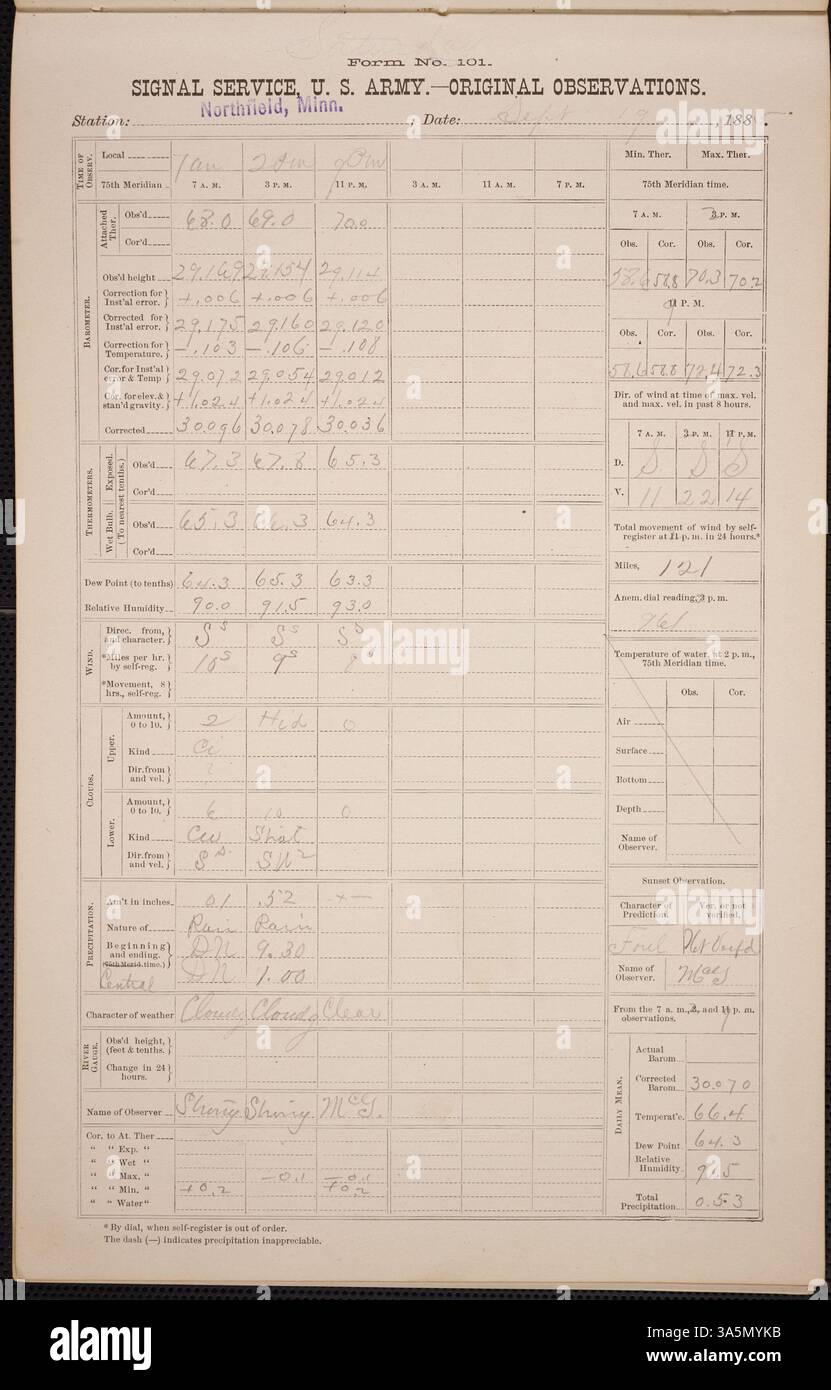 Form No. 101.
SIGNAL SERVICE, U. S. ARMY.—ORIGINAL OBSERVATIONS.
Station: Northfield, Minn. ; Date: Sept 19, 188
TIME OF OBSERV. Local 7am 2Pm 9Pm
75th Meridian 7 A. M. 3 P. M. 11 P. M. 3 A. M. 11 A. M. 7 P. M.
BAROMETER.
Attached Ther. Obs'd 68.0 69.0 70.0
Cor'd
Obs'd height 29.169 29.154 29.114
Correction for Inst'al error. +.006 +.006 +.006
Corrected for Inst'al error. 29.175 29.160 29.120
Correction for Temperature. -.103 -.106 -.108
Cor. for Inst'al error & Temp 29.072 29.054 29.012
Cor. for elev. & stan'd gravity. +1.024 +1.024 +1.024
Corrected 30.096 30.078 30.036
THERMOMETERS.
(To nearest tenths.)
Exposed. Obs'd 67.3 67.8 65.3
Cor'd
Wet Bulb. Obs'd 65.3 66.3 64.3
Cor'd
Dew Point (to tenths) 64.3 65.3 63.3
Relative Humidity 90.0 91.5 93.0
WIND.
Direc. from, and character. S S S S S S
*Miles per hr. by self-reg. 10 S 9 S 8
*Movement, 8 hrs., self-reg.
CLOUDS.
Upper. Amount, 0 to 10. 2 Hid 0
Kind Ci
Dir. from and vel.
Lower. Amount, 0 to 10. 6 10 0
Kind Cu Strat
Dir. from and vel. S SW 2
PRECIPITATION.
Am't in inches 01 .52
Nature of Rain Rain
Beginning and ending. DN 9.30
(75th Merid. time.) Central DN 1.00
Character of weather Cloudy Cloudy Clear
RIVER GAUGE. Obs'd height, (feet & tenths.
Change in 24 hours.
Name of Observer McG.
Cor. to At. Ther
" " Exp. "
" " Wet "
" " Max. " -0.1 -0.1
" " Min. " +0.2 +0.2
" " Water "
* By dial, when self-register is out of order.
The dash (—) indicates precipitation inappreciable.
Min. Ther. Max. Ther.
75th Meridian time.
7 A. M. 3 P. M.
Obs. Cor. Obs. Cor.
58.6 58.8 70.3 70.2
11 P. M.
Obs. Cor. Obs. Cor.
58.6 58.8 72.4 72.3
Dir. of wind at time of max. vel. and max. vel. in past 8 hours.
7 A. M. 3 P. M. 11 P. M.
D. S S S
V. 11 22 14
Total movement of wind by self-register at 11 p. m. in 24 hours.*
Miles, 121
Anem. dial reading, 3 p. m.
761
Temperature of water, at 2 p. m., 75th Meridian time.
Obs. Cor.
Air
Surface
Bottom
Depth
Name of Observer.
Sunset Observation.
Character of Prediction. Ver. or not verified.
Foul Not Verif'd
Name of Observer. McG
From the 7 a. m., 3, and 11 p. m. observations.
DAILY MEAN.
Actual Barom
Corrected Barom. 30.070
Temperat'e. 66.4
Dew Point 64.3
Relative Humidity. 91.5
Total Precipitation 0.53
alamy
Image ID: 3A5MYKB
www.alamy.com